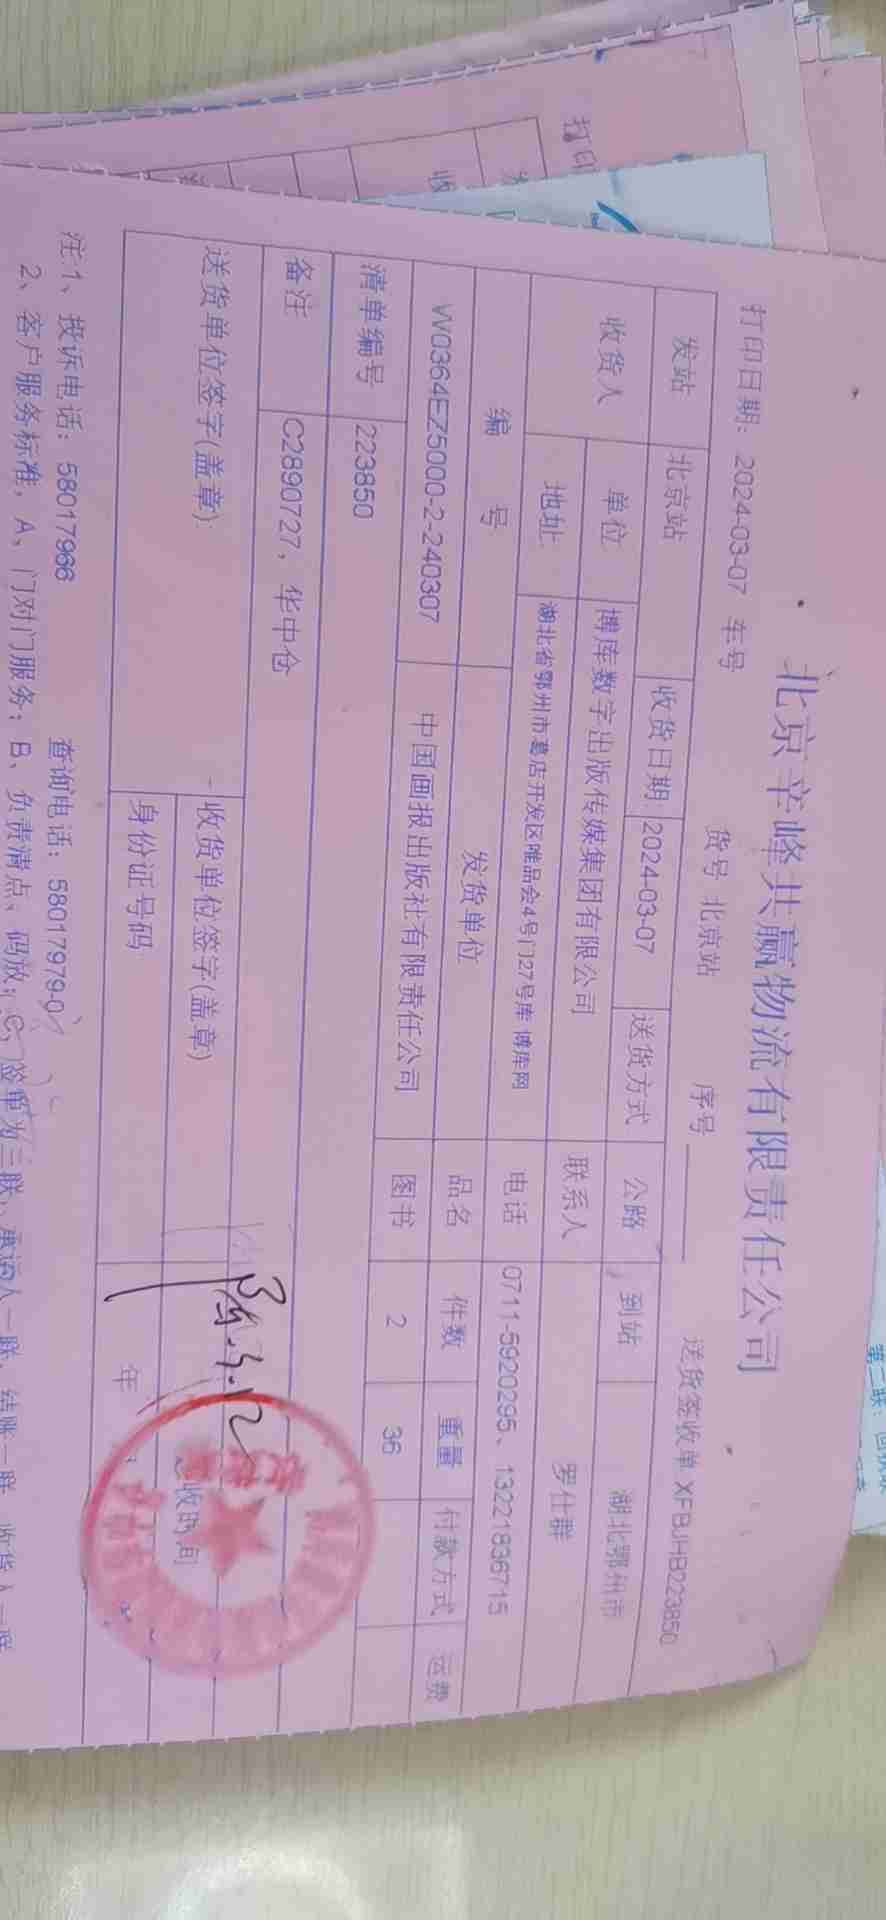 北京辛峰共赢物流有限责任公司
打印日期: 2024-03-07 车号 货号 北京站 序号 送货签收单 XFBJHB223850
发站 北京站 收货日期 2024-03-07 送货方式 公路 到站 湖北鄂州市
收货人 单位 博库数字出版传媒集团有限公司 联系人 罗仕群
地址 湖北省鄂州市葛店开发区唯品会4号门27号库 博库网 电话 0711-5920295、13221836715
编 号 发货单位 品名 件数 重量 付款方式 运费
W0364EZ5000-2-240307 中国画报出版社有限责任公司 图书 2 36
清单编号 223850
备注 C2890727, 华中仓
送货单位签字(盖章) 收货单位签字(盖章)
3.12
身份证号码 年
收时间
注:1、投诉电话: 58017966 查询电话: 58017979-0
2、客户服务标准, A、门对门服务; B、负责清点、码放; C、签单为三联, 承运人一联, 结账一联, 收货人一联
打印
收
第二联: